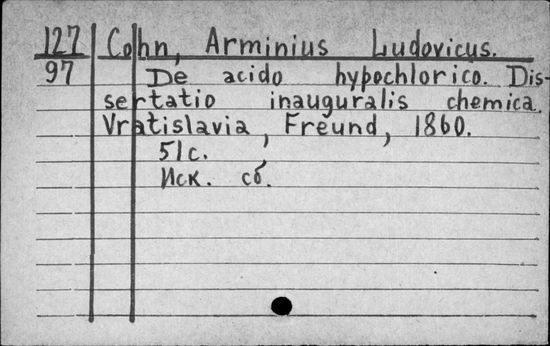 127 Cohn, Arminius Ludovicus.
97 De acido hypochlorico. Dis-
sertatio inauguralis chemica.
Vratislavia, Freund, 1860.
51с.
Иск. сб.